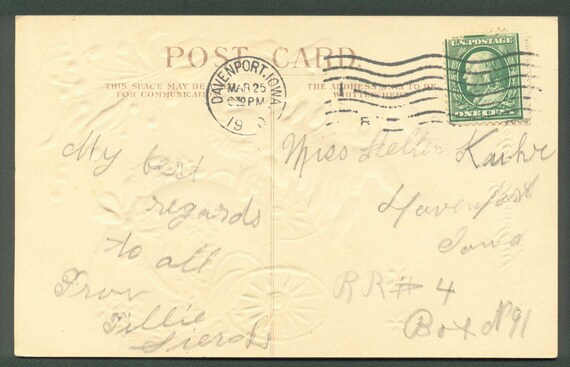 POST CARD
THIS SPACE MAY BE
FOR COMMUNICA
THE ADDRESS
DAVENPORT, IOWA
MAR 25
PM
19
U.S. POSTAGE
ONE CENT
My best
regards
to all
From
Tillie
Miss
Davenport
Iowa
RR # 4
Box No 91